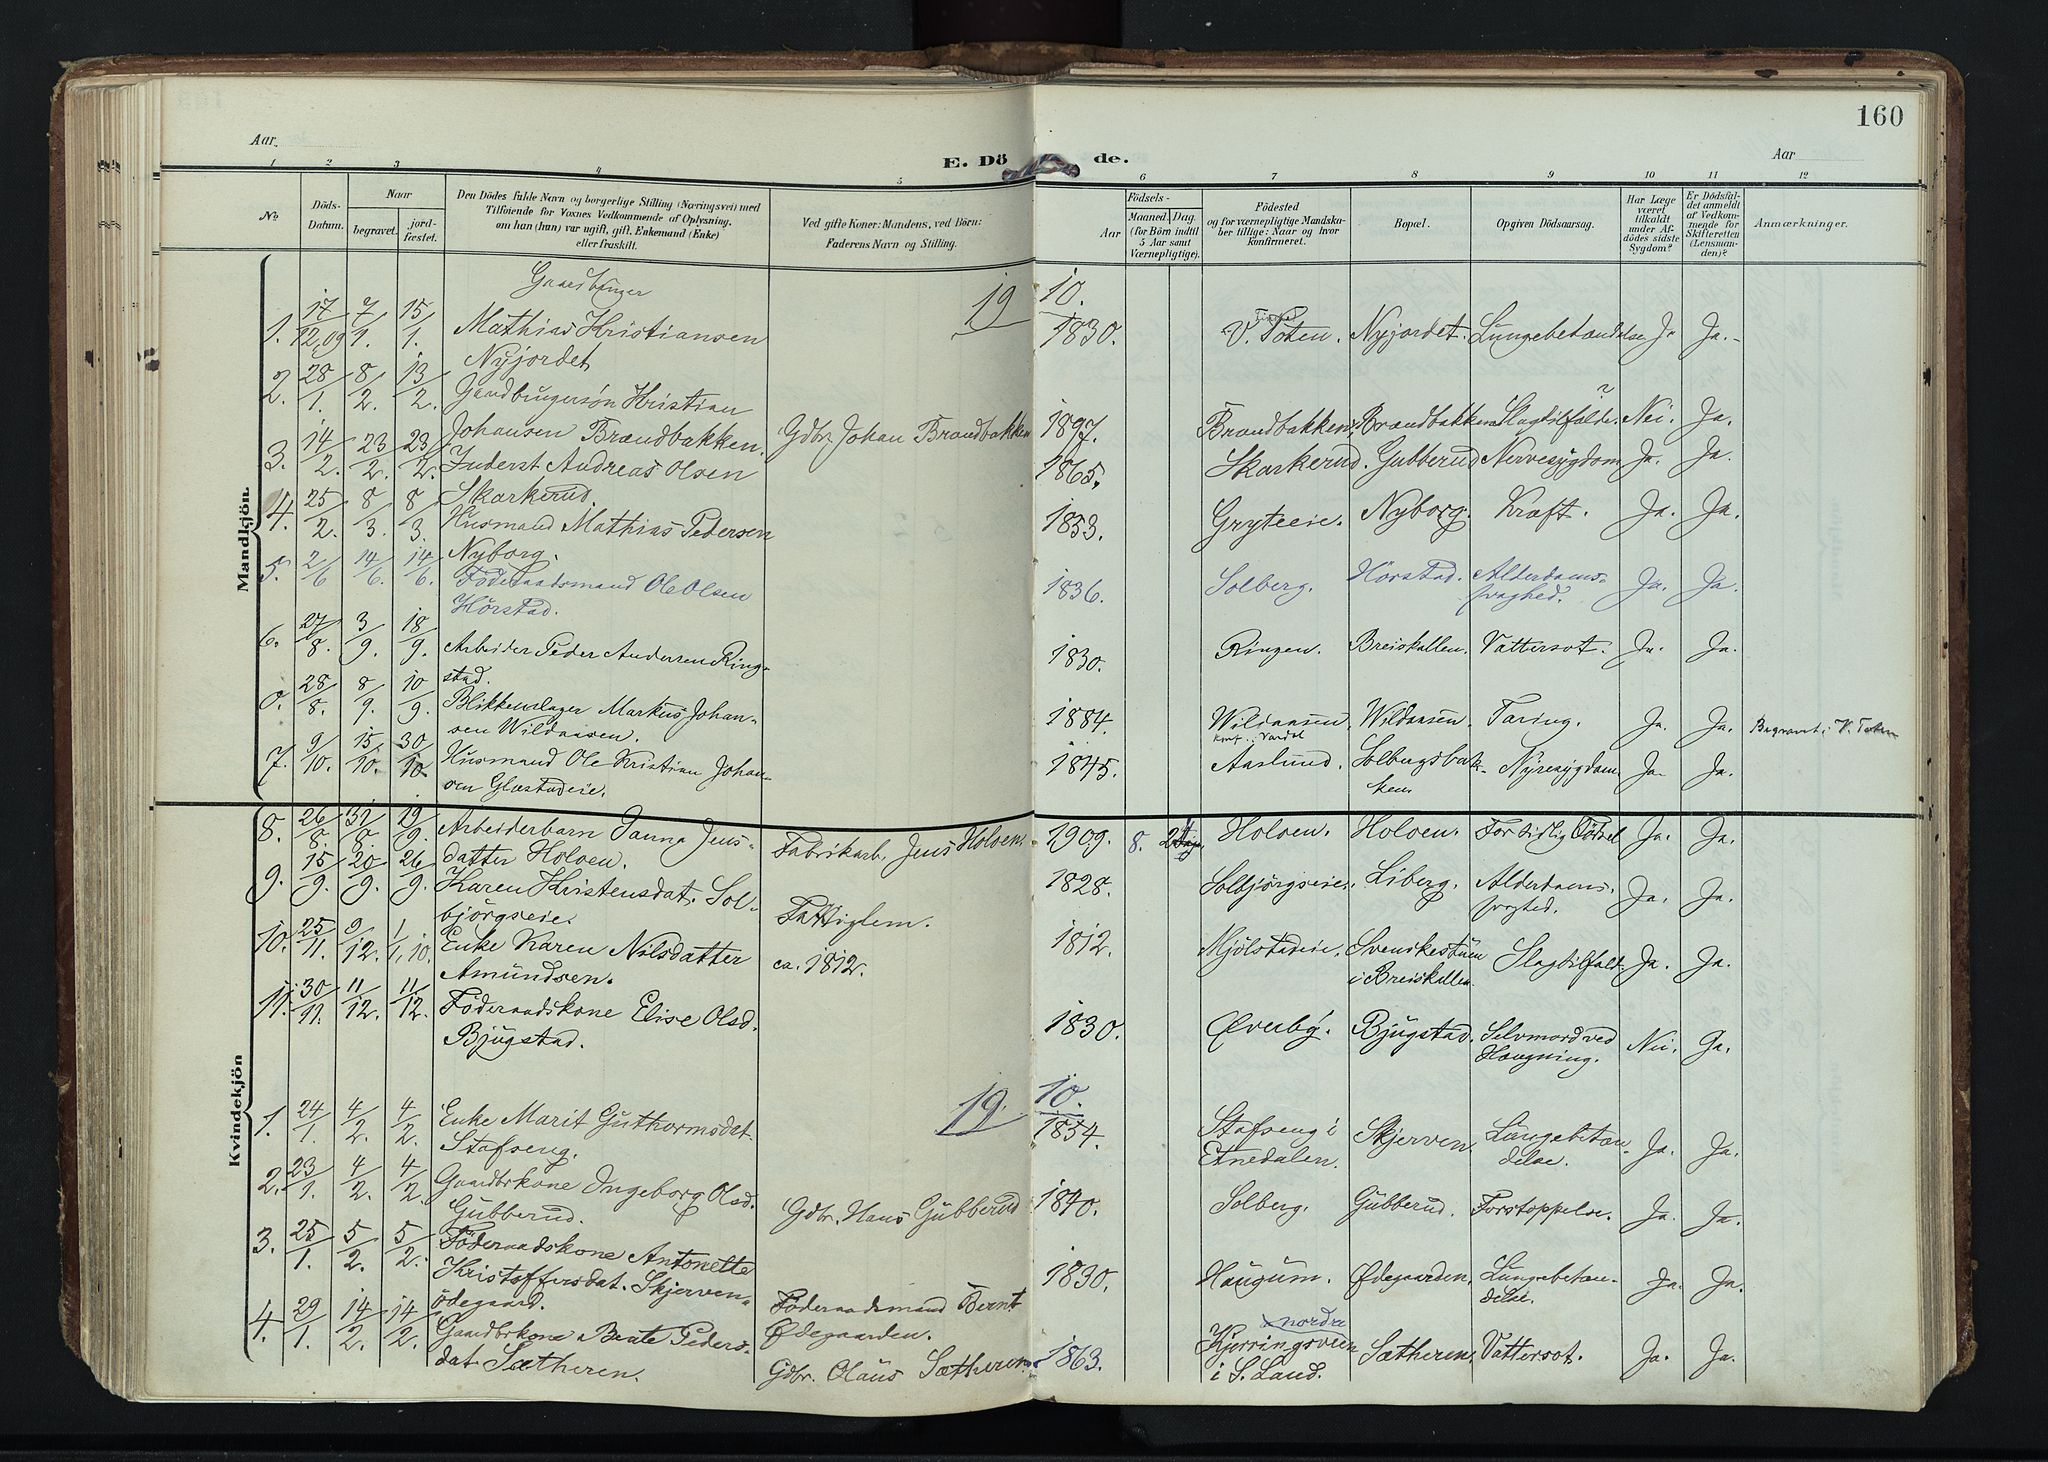 160
Aar
E. Döde.
Aar
1 2 3 4 5 6 7 8 9 10 11 12
No
Döds-Datum.
Naar
begravet.
jord-fæstet.
Den Dödes fulde Navn og borgerlige Stilling (Næringsvei) med
Tilföiende for Voxnes Vedkommende af Oplysning,
om han (hun) var ugift, gift, Enkemand (Enke)
eller fraskilt.
Ved gifte Koner: Mandens, ved Börn:
Faderens Navn og Stilling.
Födsels-
Aar
Maaned. Dag.
(for Börn indtil
5 Aar samt
Værnepligtige).
Födested
og for værnepligtige Mandska-
ber tillige: Naar og hvor
konfirmeret.
Bopæl.
Opgiven Dödsaarsag.
Har Læge
været
tilkaldt
under Af-
dödes sidste
Sygdom?
Er Dödsfal-
det anmeldt
af Vedkom-
mende for
Skifteretten
(Lensman-
den)?
Anmærkninger.
Mandkjön.
19 10.
1. 17/12,09 7/1. 15/1. Gaardbruger Mathias Kristiansen Nyjordet 1830. V. Toten. Nyjordet. Lungebetændelse Ja Ja.
2. 28/1. 8/2. 13/2. Gaardbrugersøn Kristian Johansen Brændbakken. Gdbr. Johan Brændbakken 1897. Brændbakken. Brændbakken Slagtilfælde. ? Nei. Ja.
3. 14/2. 23/2. 23/2. Inderst Andreas Olsen Skarkerud. 1865. Skarkerud. Gubberud Nervesygdom Ja. Ja.
4. 25/2. 8/3. 8/3. Husmand Mathias Pedersen Nyborg. 1853. Gryteeie. Nyborg. Kræft. Ja. Ja.
5. 2/6 14/6. 14/6. Föderaadsmand Ole Olsen Hörstad. 1836. Solberg. Hörstad. Alderdoms-svaghed. Ja. Ja.
6. 27/8. 3/9. 18/9. Arbeider Peder Andersen Ringstad. 1830. Ringen. Breiskallen. Vattersot. Ja. Ja.
0. 28/8. 8/9. 10/9. Blikkenslager Markus Johansen Wildaasen. 1884. Wildaasen. Konf. i Vardal Wildaasen. Tæring. Ja. Ja. Begravet i V. Toten
7. 9/10. 15./10. 30/10 Husmand Ole Kristian Johansen Glæstadeie. 1845. Aaslund. Solbergsbakken. Nyresygdom. Ja. Ja.
8. 26/8. 31/8. 19/9. Arbeiderbarn Janna Jensdatter Holoen. Fabrikarb. Jens Holoen 1909. 8. Holoen. Holoen. For tidlig Födsel Ja. Ja.
Kvindekjön
9. 15/9. 20/9. 26/9. Karen Kristensdat. Solbjörgseie. Fattiglem. 1828. Solbjörgseie. Liberg. Alderdoms-svaghed. Ja. Ja.
10. 25/11. 9/12. 1/1,10. Enke Karen Nilsdatter Amundsen. ca. 1812. 1812. Mjölstadeie. Svenskestuen i Breiskallen. Slagtilfælde. Ja. Ja.
11. 30/11. 11/12. 11/12. Föderaadskone Elise Olsd. Bjugstad. 1830. Överby. Bjugstad. Selvmord ved Hængning. Nei. Ja.
19 10.
1. 24/1. 4/2. 4/2. Enke Marit Guthormsdat. Stafseng. 1834. Stafseng i Etnedalen. Skjerven. Lungebetændelse. Ja. Ja.
2. 23/1. 4/2. 4/2. Gaardbrkone Ingeborg Olsd. Gubberud. Gdbr. Hans Gubberud 1840. Solberg. Gubberud. Forstoppelse. Ja. Ja.
3. 25/1. 5/2. 5/2. Föderaadskone Antonette Kristoffersdat. Skjerven-ödegaard. Föderaadsmand Bernt Ødegaarden. 1830. Haugum. Ødegaarden. Lungebetændelse. Ja. Ja.
4. 29/1. 14/2. 14/2. Gaardbrkone Beate Pedersdat. Sætheren. Gdbr. Olaus Sætheren 1863. nordre Kjerringsveen i S. Land. Sætheren. Vattersot. Ja. Ja.